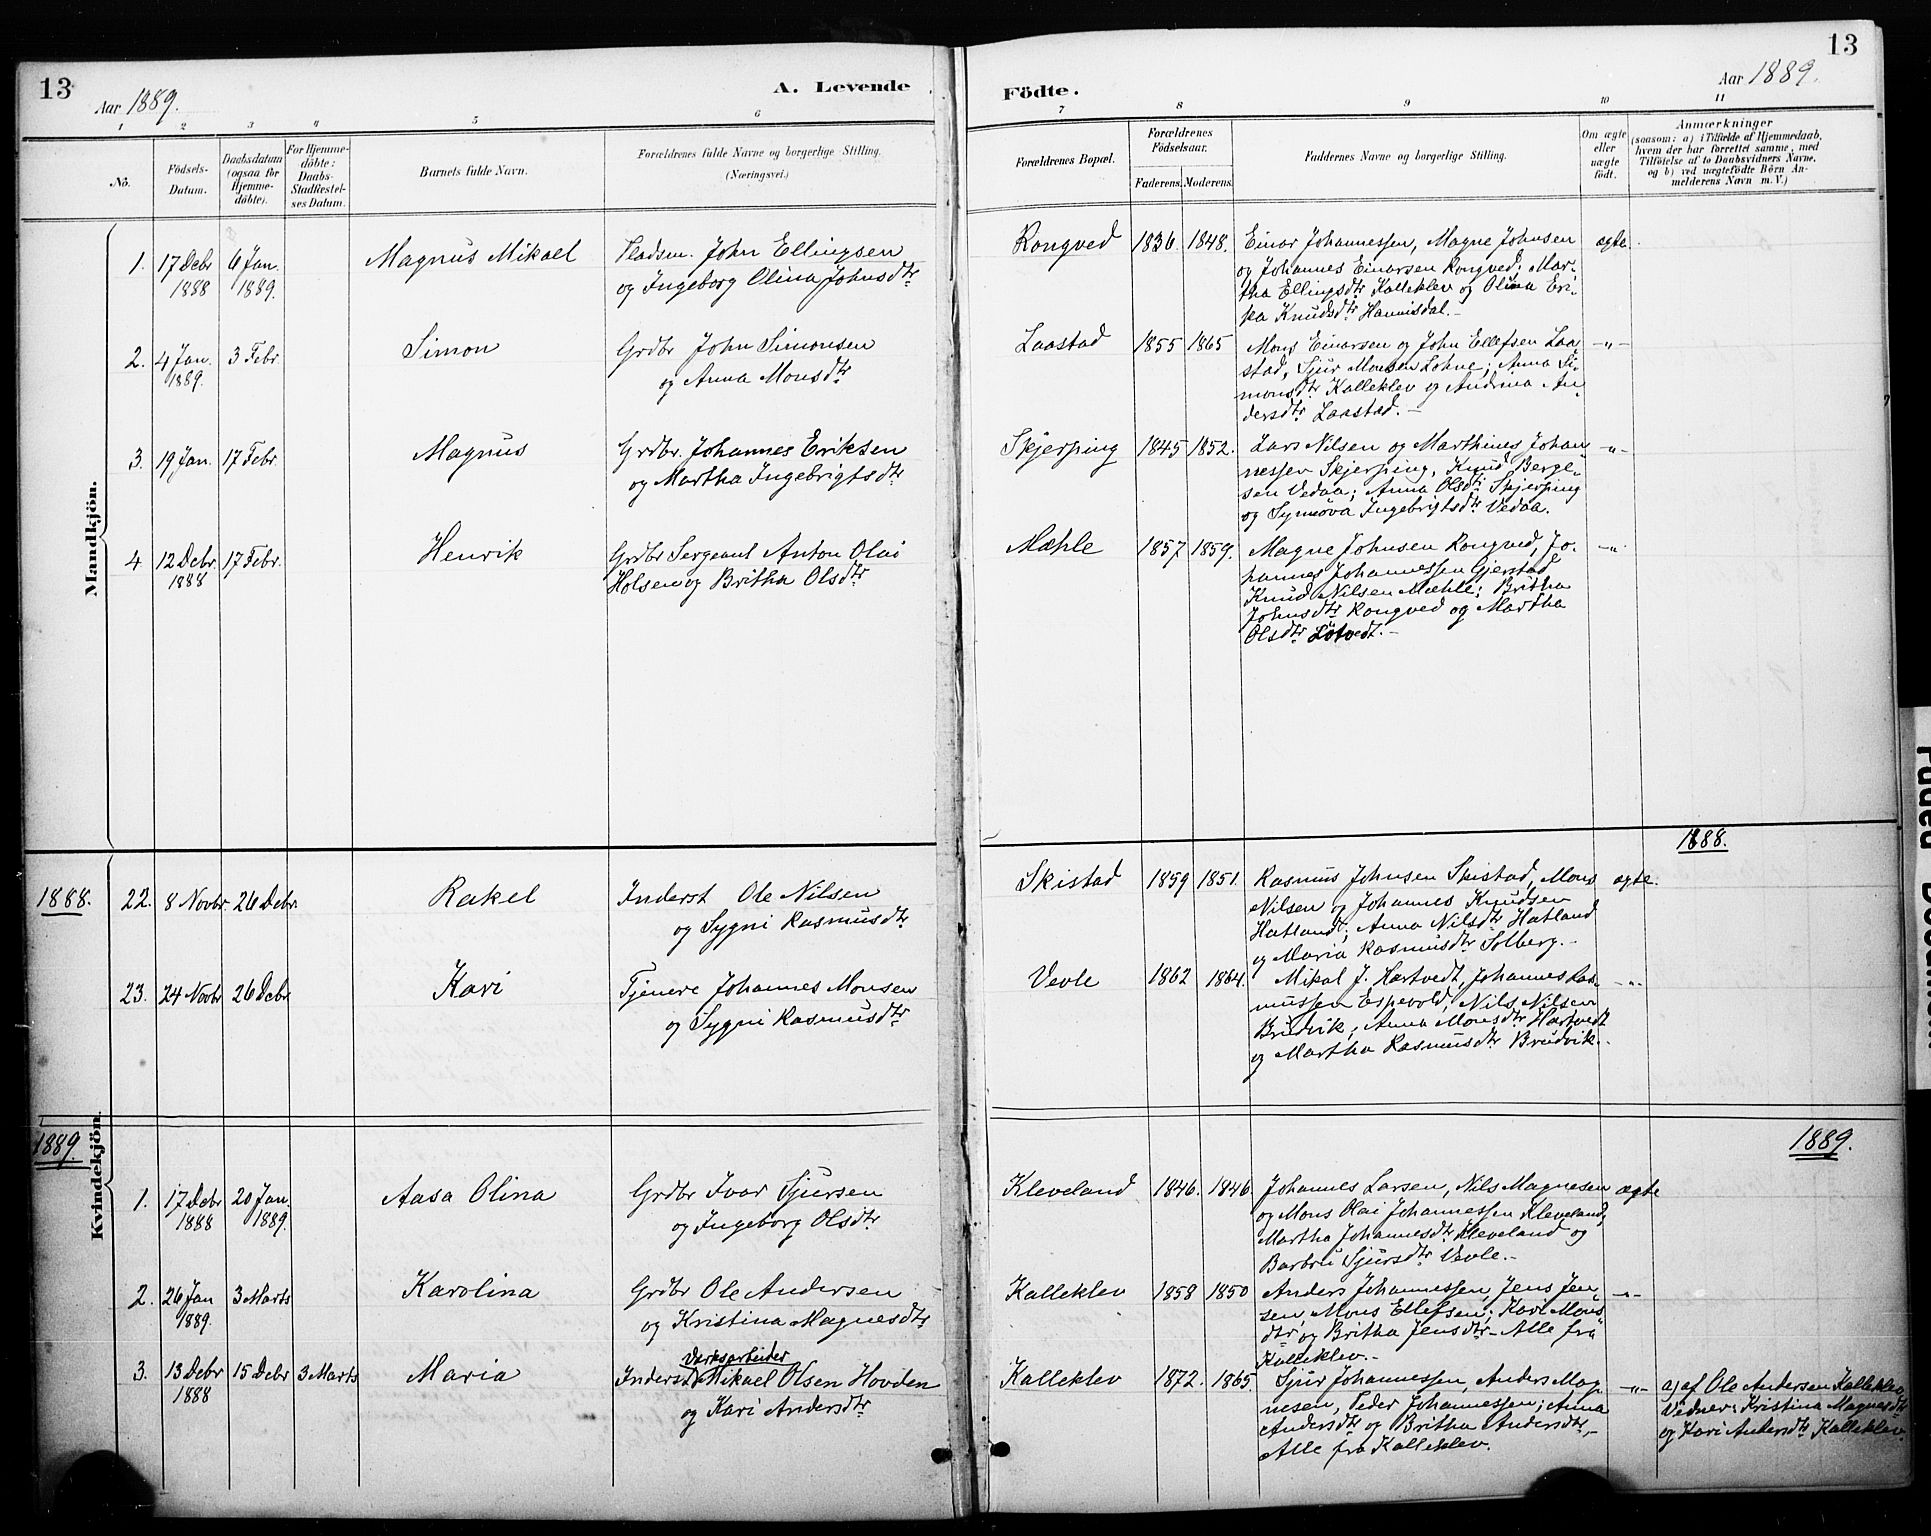 13
Aar 1889.
A. Levende
Födte.
Aar 1889.
13
1 2 3 4 5 6 7 8 9 10 11
No.
Födsels-Datum.
Daabsdatum (ogsaa for Hjemmedöbte).
For Hjemmedöbte: Daabs-Stadfæstelses Datum.
Barnets fulde Navn.
Forældrenes fulde Navne og borgerlige Stilling.
(Næringsvei.)
Forældrenes Bopæl.
Forældrenes Födselsaar.
Faderens. Moderens.
Faddernes Navne og borgerlige Stilling.
Om ægte eller uægte födt.
Anmærkninger
(saasom: a) i Tilfælde af Hjemmedaab, hvem der har forrettet samme, med Tilföielse af to Daabsvidners Navne, og b) ved uægtefödte Börn Anmelderens Navn m. V.)
Mandkjön.
1. 17 Debr 1888 6 Jan. 1889. Magnus Mikael Pladsm. John Ellingsen
og Ingeborg Olina Johnsdtr
Rongved 1836. 1848. Einar Johannessen, Magne Johnsen ægte.
og Johannes Einarsen Rongved; Mar-
tha Ellingsdtr Kalleklev og Olina Eri-
ka Knudsdtr Hannisdal.-
2. 4 Jan. 1889. 3 Febr. Simon Grdbr John Simonsen
og Anna Monsdtr
Laastad 1855 1865 Mons Einarsen og John Ellefsen Laa- -"-
stad, Sjur Monsen Lohne; Anna Si-
monsdtr Kalleklev og Andrina An-
dersdtr Laastad.-
3. 19 Jan. 17 Febr. Magnus Grdbr. Johannes Eriksen
og Martha Ingebrigtsdtr
Skjerping 1845 1852. Lars Nilsen og Marthines Johan- -"-
nessen Skjerping, Knud Berge-
sen Vedaa; Anna Olsdtr Skjerping
og Synnöva Ingebrigtsdtr Vedaa.
4 12 Debr. 1888 17 Febr. Henrik Grdbr Sergeant Anton Olai
Holsen og Britha Olsdtr
Mæhle 1857 1859. Magne Johnsen Rongved, Jo- -"-
hannes Johannessen Gjerstad
Knud Nilsen Mæhle; Britha
Johnsdtr Rongved og Martha
Olsdtr Lötvedt.-
1888.
1888. 22. 8 Novbr. 26 Debr. Rakel Inderst Ole Nilsen
og Sygni Rasmusdtr
Skistad 1859 1851. Rasmus Johnsen Skistad, Mons ægte.
Nilsen og Johannes Knudsen
Hatland; Anna Nilsdtr Hatland
og Maria Rasmusdtr Solberg.-
23. 24 Novbr 26 Debr Kari Tjenere Johannes Monsen
og Sygni Rasmusdtr
Vevle 1862 1864. Mikal J. Hartvedt, Johannes Ras- -"-
mussen Espevold, Nils Nilsen
Brudvik; Anna Monsdtr Hartvedt
og Martha Rasmusdtr Brudvik.-
Kvindekjön.
1889.
1889.
1. 17 Debr 1888 20 Jan. 1889. Aasa Olina Grdbr Ivar Sjursen
og Ingeborg Olsdtr
Kleveland 1846. 1846. Johannes Larsen, Nils Magnesen ægte
og Mons Olai Johannessen Kleveland,
Martha Johannesdtr Kleveland og
Barbru Sjursdtr Vevle.-
2. 26 Jan 1889. 3 Marts Karolina Grdbr Ole Andersen
og Kristina Magnesdtr
Kalleklev 1858 1850 Anders Johannessen, Jens Jen- -"-
sen, Mons Ellefsen; Kari Mons
dtr og Britha Jensdtr - Alle fra
Kalleklev.-
3. 13 Debr 1888 15 Debr 3 Marts Maria Værksarbeider
Inderst Mikael Olsen Hovden
og Kari Andersdtr
Kalleklev 1872. 1865. Sjur Johannessen, Anders Mag- -"- a) af Ole Andersen Kalleklev
nesen, Peder Johannessen; Anna Vidner: Kristina Magnesdtr
Andersdtr og Britha Andersdtr,- og Kari Andersdtr Kalleklev.
Alle fra Kalleklev.